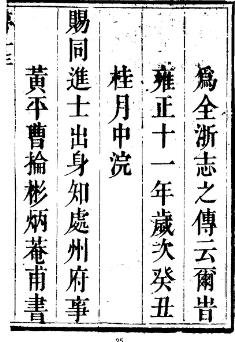 爲全浙志之傳云爾旹
雍正十一年歲次癸丑
桂月中浣
賜同進士出身知處州府事
黃平曹掄彬炳菴甫書